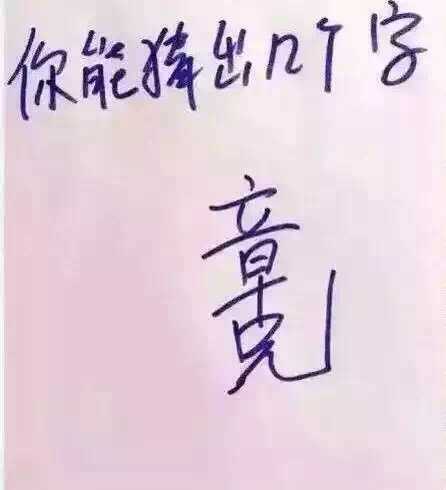 你能猜出几个字